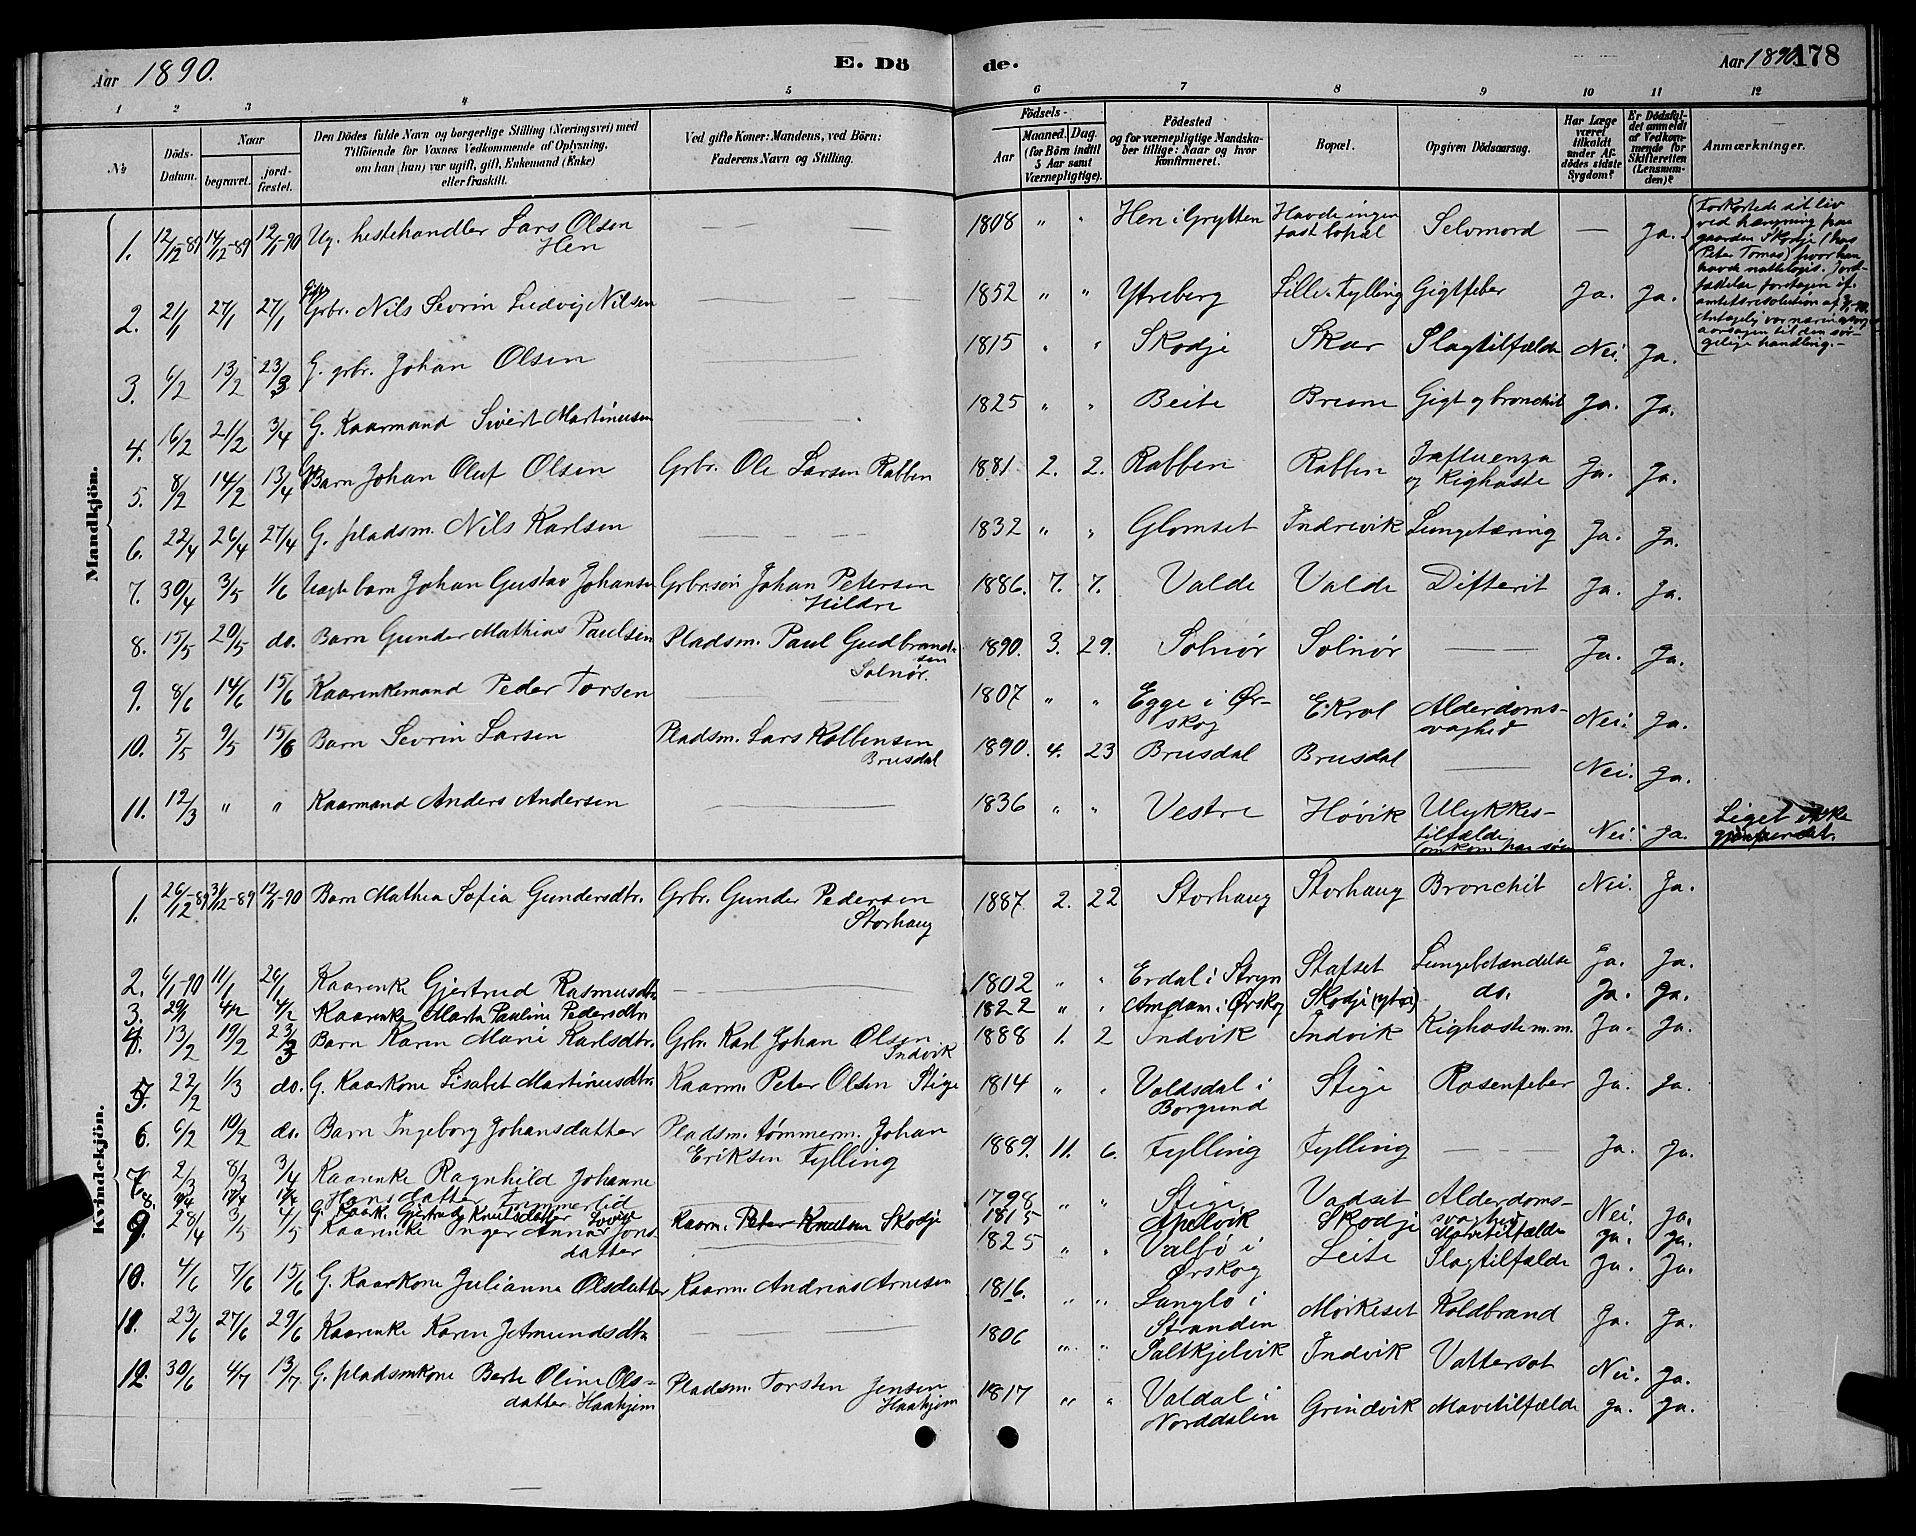 Aar 1890. E. Dö de. Aar 1890. 178
1 2 3 4 5 6 7 8 9 10 11 12
№ Döds-Datum. Naar begravet. jordfæstet. Den Dödes fulde Navn og borgerlige Stilling (Næringsvei) med Tilföiende for Voxnes Vedkommende af Oplysning, om han (hun) var ugift, gift, Enkemand (Enke) eller fraskilt. Ved gifte Koner: Mandens, ved Börn: Faderens Navn og Stilling. Födsels- Aar Maaned. Dag. (for Börn indtil 5 Aar samt Værnepligtige). Födested og for værnepligtige Mandskaber tillige: Naar og hvor konfirmeret. Bopæl. Opgiven Dödsaarsag. Har Læge været tilkaldt under Afdödes sidste Sygdom? Er Dödsfaldet anmeldt af Vedkommende for Skifteretten (Lensmanden)? Anmærkninger.
Mandkjön.
1. 12/12-89 14/12-89 12/1-90 Ug. hestehandler Lars Olsen Hen — 1808 " " Hen i Grytten Havde ingen fast bopæl Selvmord — Ja. Forkortede sit liv ved hængning paa gaarden Skodje (hos Peter Tomas) hvor han havde nattelogis. Jordfæstelse foretagen if. amtsresolution af
2. 21/1 27/1 27/1 Gift Grbr. Nils Sevrin Ludvig Nilsen — 1852 " " Ytreberg Lille-Fylling Gigtfeber Ja. Ja. Antagelig var næringssorg aarsagen til den sørgelige handling.-
3. 6/2 13/2 23/3 G. grbr. Johan Olsen 1815 " " Skodje Skar Slagtilfælde Nei. Ja.
4. 16/2 21/2 3/4 G. Kaarmand Sivert Martinusen 1825 " " Beite Breune Gigt og bronchit Ja. Ja.
5. 8/2 14/2 13/4 Barn Johan Oluf Olsen Grbr. Ole Larsen Rabben 1881 2. 2. Rabben Rabben Influenza og Kighoste Ja. Ja.
6. 22/4 26/4 27/4 G. pladsm. Nils Karlsen — 1832 " " Glomset Indrevik Lungetæring Ja. Ja.
7. 30/4 3/5 1/6 Uægte barn Johan Gustav Johansen Grbr.søn Johan Petersen Hildre 1886. 7. 7. Valde Valde Difterit Ja. Ja.
8. 15/5 20/5 do. Barn Gunder Mathias Paulsen Pladsm. Paul Gudbrandsen Solnør. 1890. 3. 29. Solnør Solnør — Ja. Ja.
9. 8/6 14/6 15/6 Kaarenkemand Peder Torsen — 1807 " " Egge i Ørskog Ekrol Alderdomssvaghed Nei. Ja.
10. 5/5 9/5 15/6 Barn Sevrin Larsen Pladsm. Lars Kolbensen Brusdal 1890. 4. 23 Brusdal Brusdal — Nei. Ja.
11. 12/3 " " Kaarmand Anders Andersen — 1836 " " Vestre Høvik Ulykkestilfælde (omkom paa søen Nei. Ja. Liget ikke gjenfundet.
Kvindekjön.
1. 26/12-89 31/12-89 12/1-90 Barn Mathea Sofia Gundersdtr. Grbr. Gunder Pedersen Storhaug 1887. 2. 22 Storhaug Storhaug Bronchit Nei. Ja.
2. 6/1-90 11/1 26/1 Kaarenke Gjertrud Rasmusdtr — 1802 " " Erdal i Stryn Stafset Lungebetændelse Ja. Ja.
3. 29/1 4/2 4/2 Kaarenke Marta Pauline Pedersdtr 1822 " " Amdam i Ørskog Skodje (ytre) do. Ja. Ja.
4. 13/2 19/2 23/3 Barn Karen Marie Karlsdtr. Grbr. Karl Johan Olsen Indvik 1888 1. 2 Indvik Indvik Kighoste m.m. Ja. Ja.
5. 22/2 1/3 do. G. Kaarkone Lisabet Martinusdtr. Kaarm. Peter Olsen Stige 1814 " " Valdsdal i Borgund Stige Rosenfeber Ja. Ja.
6. 6/2 10/2 do. Barn Ingeborg Johansdatter Pladsm. tømmerm. Johan Eriksen Fylling 1889. 11. 6. Fylling Fylling — Ja. Ja.
7. 2/3 8/3 3/4 Kaarenke Ragnhild Johanne Hansdatter Tømmerlid 1798 " " Stige Vadset Alderdomssvaghed Nei. Ja.
8. G. Kaark. Gjertrud Knutsdatter Kaarm. Peter Knutsen Skodje 1815 Apelvik Skodje Mavetilfælde Ja. Ja.
9. 28/4 3/5 4/5 Kaarenke Inger Anna Jonsdatter — 1825 " " Valbø i Ørskog Leite Slagtilfælde Ja. Ja.
10. 4/6 7/6 15/6 G. Kaarkone Julianna Olsdatter Kaarm. Andreas Arnesen 1816. " " Langlo i Stranden Mørkeset Koldbrand Ja. Ja.
11. 23/6 27/6 29/6 Kaarenke Karen J. Amundsdtr — 1806 " " Saltkjelvik Indvik Vattersot Nei. Ja.
12. 30/6 4/7 13/7 G. pladsmkone Berte Oline Olsdatter Haahjem Pladsm. Torsten Jensen Haahjem 1817 " " Valdal i Norddalen Grindvik Mavetilfælde Ja. Ja.